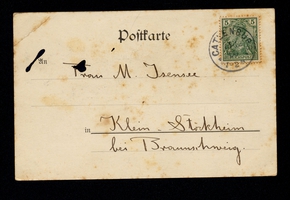 Postkarte
An Frau M. Isensee
in Klein-Stöckheim
bei Braunschweig.
5